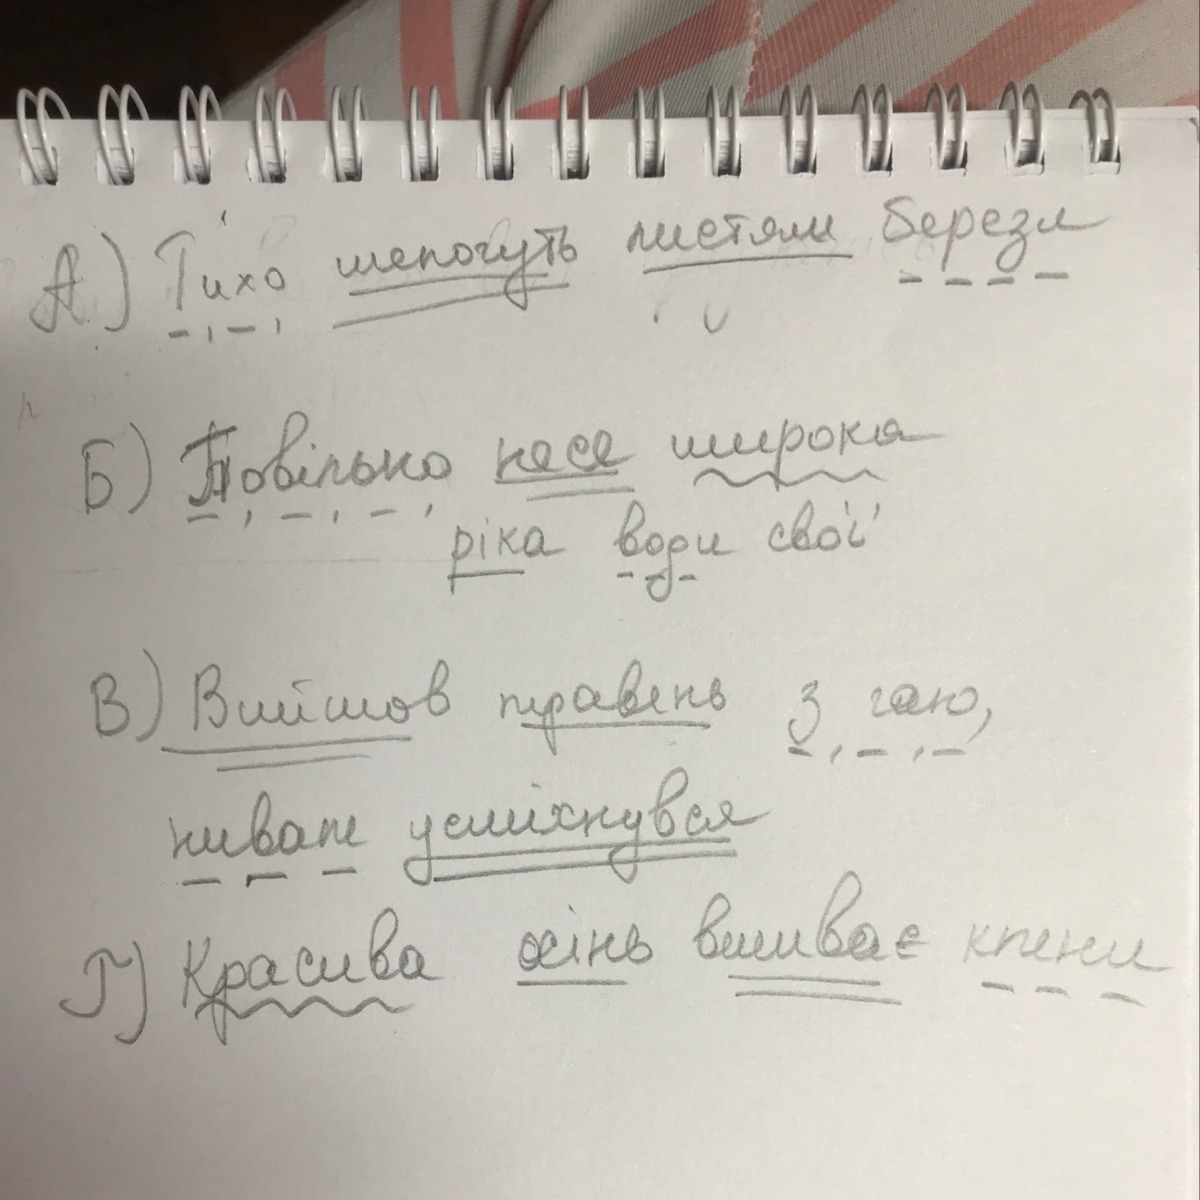 А) Тихо шепочуть листям берези
Б) Повільно несе широка
ріка води свої
В) Вийшов травень з гаю,
нивам усміхнувся
Г) Красива осінь вишиває клени